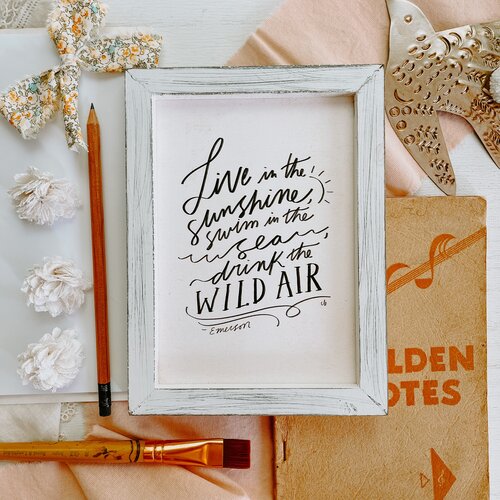 Live in the
sunshine,
swim in the
sea,
drink the
WILD AIR
- Emerson
LDEN
OTES